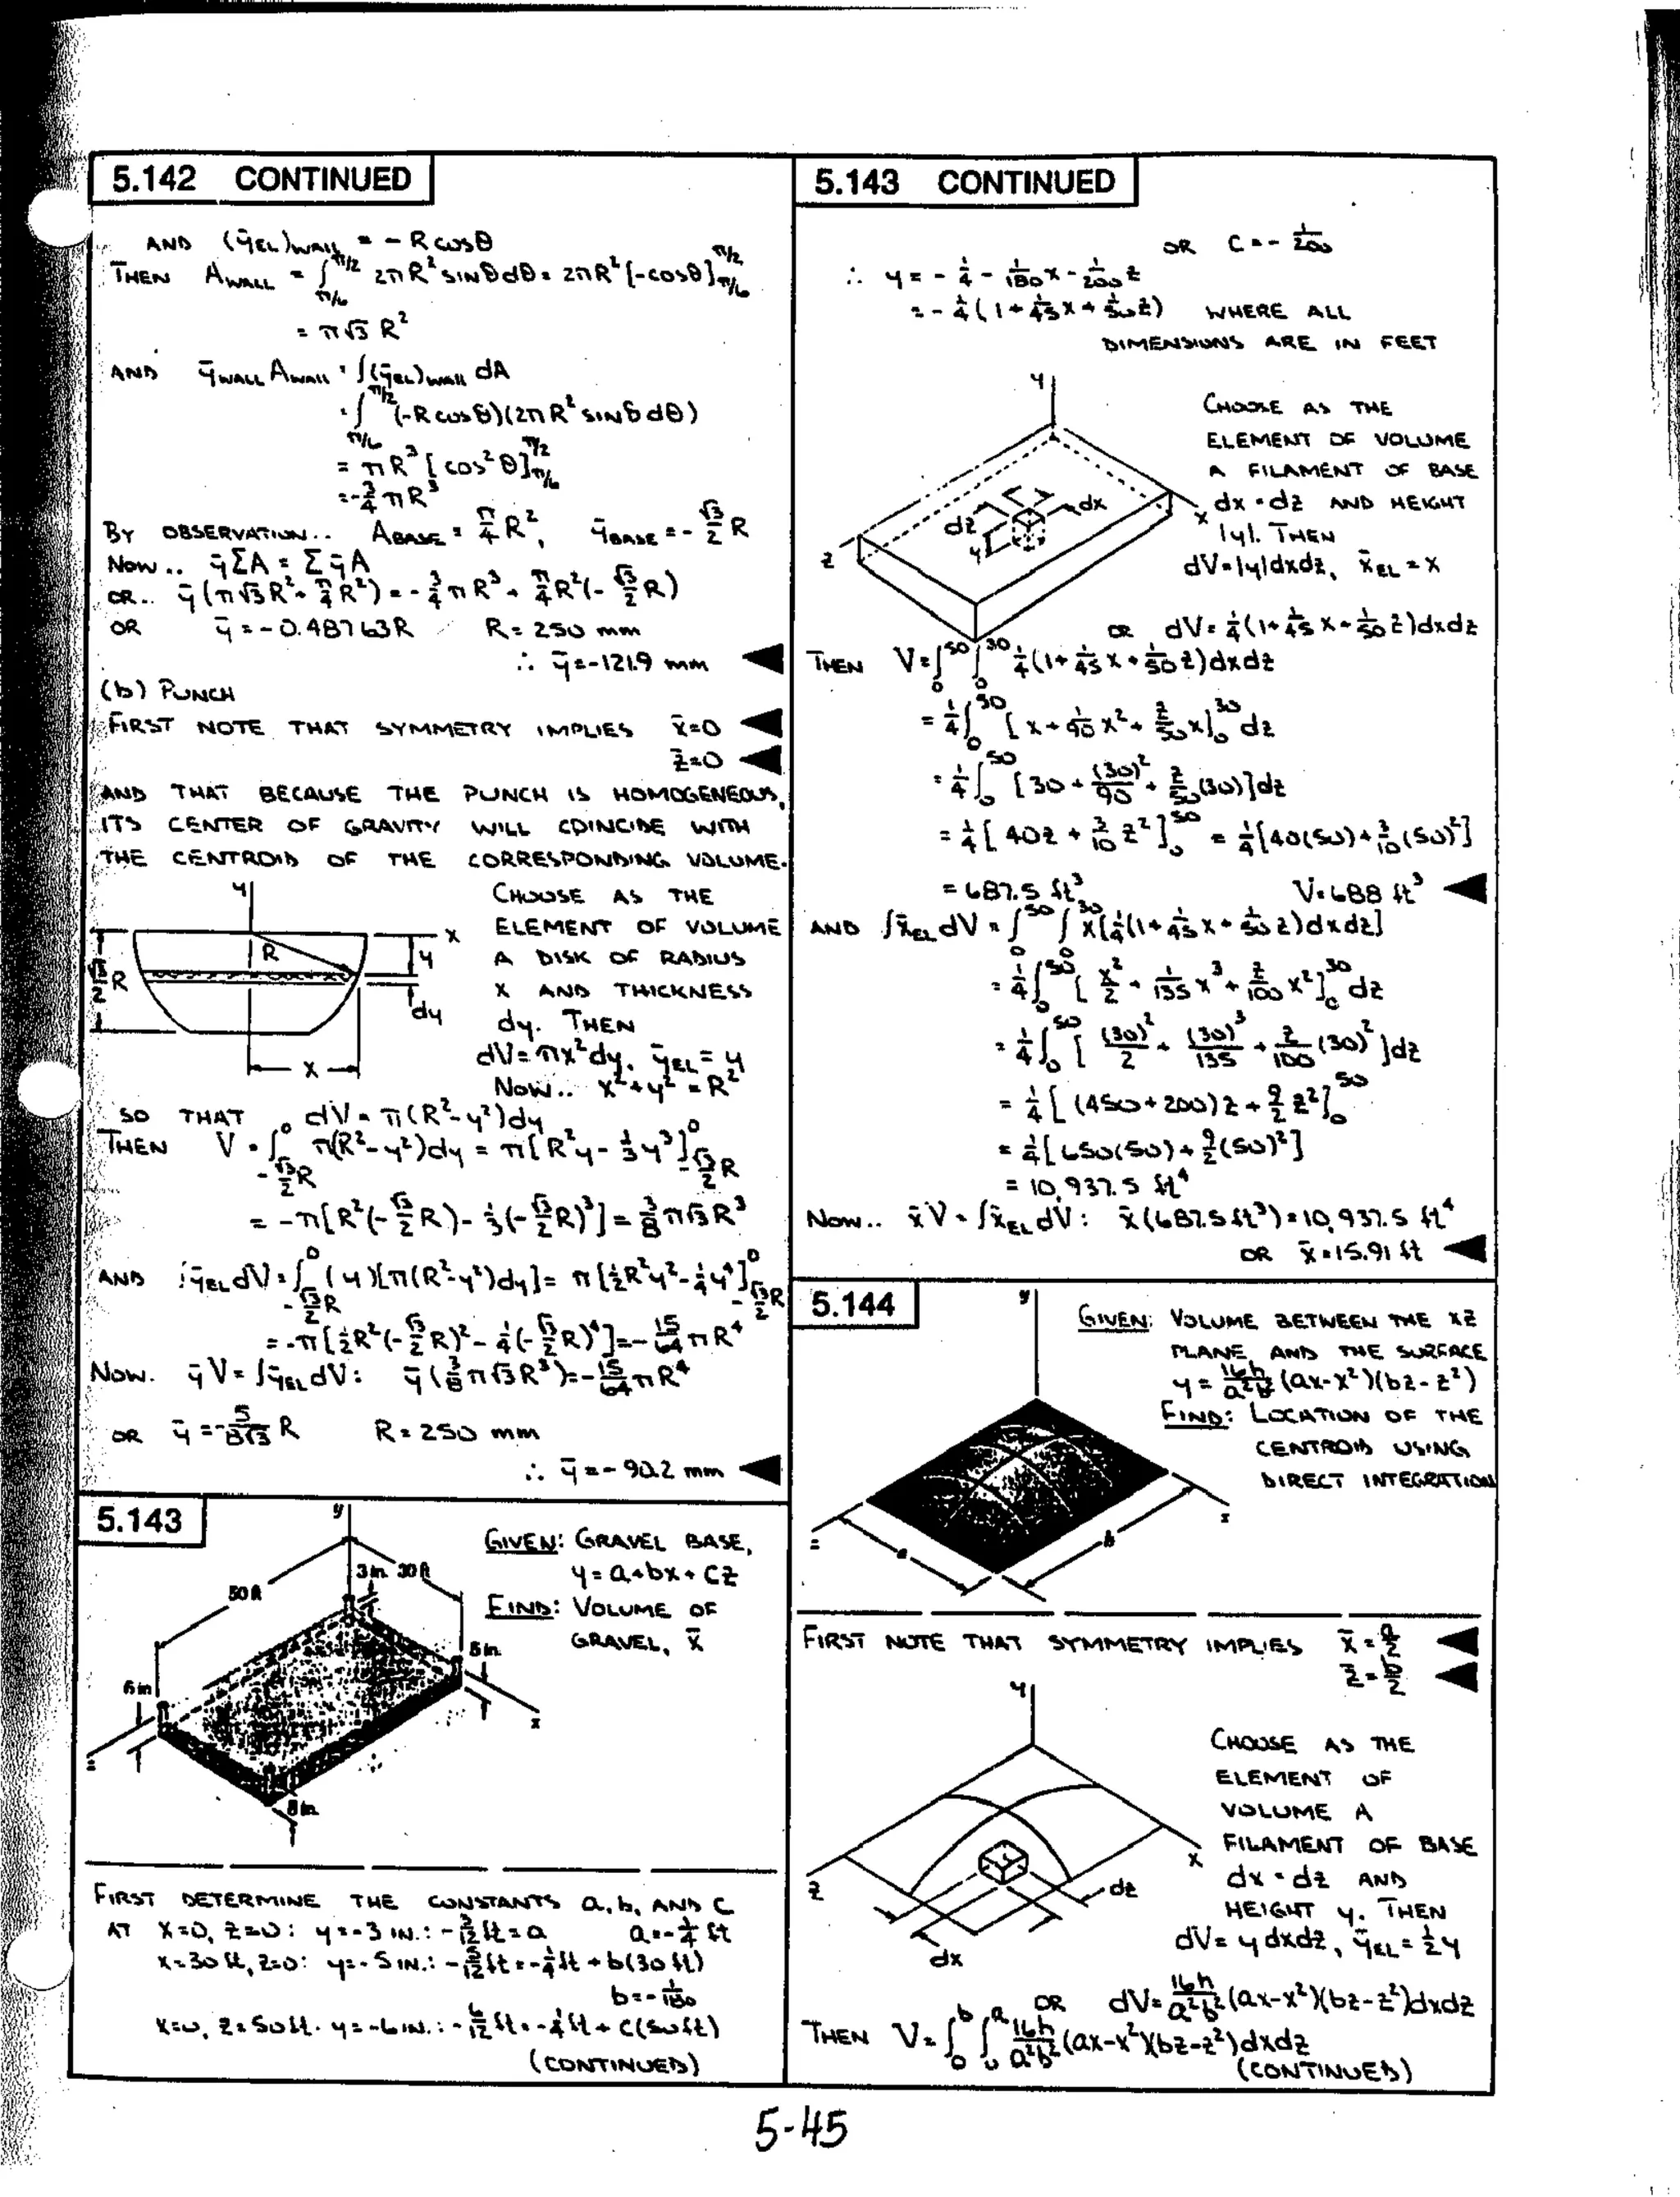 5.142 CONTINUED
AND (ȳEL)WALL = - R cosθ
THEN AWALL = ∫π/6^π/2 2πR² sinθdθ = 2πR²[-cosθ]π/6^π/2
= π√3 R²
AND ȳWALL AWALL = ∫(ȳEL)WALL dA
= ∫π/6^π/2 (-R cosθ)(2πR² sinθdθ)
= πR³[cos²θ]π/6^π/2
= -3/4 πR³
BY OBSERVATION.. ABASE = π/4 R², ȳBASE = - √3/2 R
NOW.. ȳΣA = ΣȳA
OR.. ȳ(π√3R² + π/4 R²) = - 3/4 πR³ + π/4 R²(- √3/2 R)
OR ȳ = -0.48763R R = 250 mm
∴ ȳ = -121.9 mm ◀
(b) PUNCH
FIRST NOTE THAT SYMMETRY IMPLIES x̄=0 ◀
z̄=0 ◀
AND THAT BECAUSE THE PUNCH IS HOMOGENEOUS,
ITS CENTER OF GRAVITY WILL COINCIDE WITH
THE CENTROID OF THE CORRESPONDING VOLUME.
y
x
R
y
√3/2 R
dy
x
CHOOSE AS THE
ELEMENT OF VOLUME
A DISK OF RADIUS
X AND THICKNESS
dy. THEN
dV = πx²dy, ȳEL = y
NOW.. x²+y² = R²
SO THAT dV = π(R²-y²)dy
THEN V = ∫-√3/2R^0 π(R²-y²)dy = π[R²y - 1/3 y³]-√3/2R^0
= -π[R²(-√3/2 R) - 1/3(-√3/2 R)³] = 3/8 π√3R³
AND ∫ȳEL dV = ∫-√3/2R^0 (y)[π(R²-y²)dy] = π[1/2R²y² - 1/4y⁴]-√3/2R^0
= -π[1/2R²(-√3/2 R)² - 1/4(-√3/2 R)⁴] = -15/64 πR⁴
NOW. ȳV = ∫ȳEL dV: ȳ(3/8 π√3R³) = -15/64 πR⁴
OR ȳ = -5/8√3 R R = 250 mm
∴ ȳ = -90.2 mm ◀
5.143
y
50 ft
3 in.
30 ft
5 in.
6 in
8 in.
x
z
GIVEN: GRAVEL BASE,
y = a+bx+cz
FIND: VOLUME OF
GRAVEL, x̄
FIRST DETERMINE THE CONSTANTS a, b, AND C
AT X=0, Z=0: y=-3 IN.: -3/12 ft = a a = -1/4 ft
x=30 ft, z=0: y=-5 IN.: -5/12 ft = -1/4 ft + b(30 ft)
b = -1/180
x=0, z=50 ft. y=-6 IN.: -6/12 ft = -1/4 ft + C(50 ft)
(CONTINUED)
5.143 CONTINUED
OR C = - 1/200
∴ y = - 1/4 - 1/180 x - 1/200 z
= - 1/4(1 + 1/45 x + 1/50 z) WHERE ALL
DIMENSIONS ARE IN FEET
y
x
z
dz
dx
y
CHOOSE AS THE
ELEMENT OF VOLUME
A FILAMENT OF BASE
dx × dz AND HEIGHT
|y|. THEN
dV = |y|dxdz, x̄EL = x
OR dV = 1/4(1 + 1/45 x + 1/50 z)dxdz
THEN V = ∫0^50 ∫0^30 1/4(1 + 1/45 x + 1/50 z)dxdz
= 1/4∫0^50 [x + 1/90 x² + z/50 x]0^30 dz
= 1/4∫0^50 [30 + (30)²/90 + z/50(30)]dz
= 1/4[40z + 3/10 z²]0^50 = 1/4[40(50) + 3/10(50)²]
= 687.5 ft³ V = 688 ft³ ◀
AND ∫x̄EL dV = ∫0^50 ∫0^30 x[1/4(1 + 1/45 x + 1/50 z)dxdz]
= 1/4∫0^50 [x²/2 + 1/135 x³ + z/100 x²]0^30 dz
= 1/4∫0^50 [(30)²/2 + (30)³/135 + z/100(30)²]dz
= 1/4[(450+200)z + 9/2 z²]0^50
= 1/4[650(50) + 9/2(50)²]
= 10,937.5 ft⁴
NOW.. x̄V = ∫x̄EL dV: x̄(687.5 ft³) = 10,937.5 ft⁴
OR x̄ = 15.91 ft ◀
5.144
y
x
z
a
b
GIVEN: VOLUME BETWEEN THE XZ
PLANE AND THE SURFACE
y = 16h/a²b² (ax-x²)(bz-z²)
FIND: LOCATION OF THE
CENTROID USING
DIRECT INTEGRATION
FIRST NOTE THAT SYMMETRY IMPLIES x̄ = a/2 ◀
z̄ = b/2 ◀
y
x
z
dz
dx
CHOOSE AS THE
ELEMENT OF
VOLUME A
FILAMENT OF BASE
dx × dz AND
HEIGHT y. THEN
dV = y dxdz, ȳEL = 1/2 y
OR dV = 16h/a²b² (ax-x²)(bz-z²)dxdz
THEN V = ∫0^b ∫0^a 16h/a²b² (ax-x²)(bz-z²)dxdz
(CONTINUED)
5-45